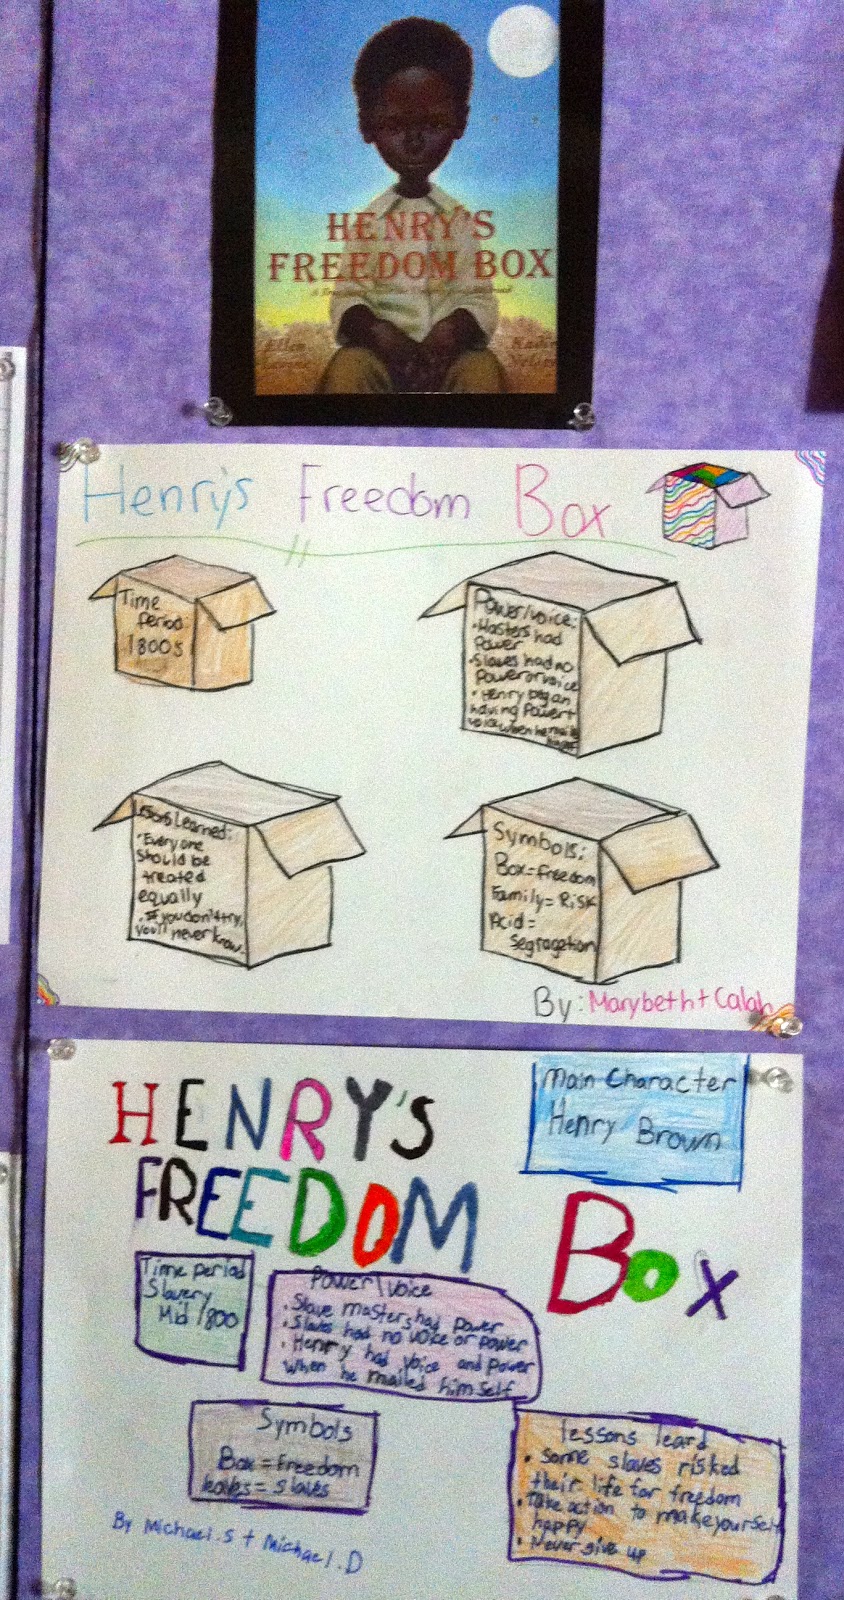 HENRY'S
FREEDOM BOX
Ellen
Levine
Kadir
Nelson
Henry's Freedom Box
Time
Period:
1800s
Power/voice:
•Masters had
Power
•Slaves had no
Power or voice
•Henry began
having Power+
voice when he
Lessons Learned:
•Everyone
should be
treated
equally
•If you don't try,
you'll never know.
Symbols:
Box=Freedom
Family=Risk
Acid=
Segragation
By: Marybeth + Calah
HENRY'S
FREEDOM
Box
Main Character
Henry Brown
Time period
Slavery
Mid 1800
Power/voice
•Slave masters had power
•Slaves had no voice or power
•Henry had voice and power
when he mailed himself
Symbols
Box=Freedom
leaves=slaves
lessons leard
•Some slaves risked
their life for freedom
•Take action to make yourself
happy
•Never give up
By Michael.S + Michael.D